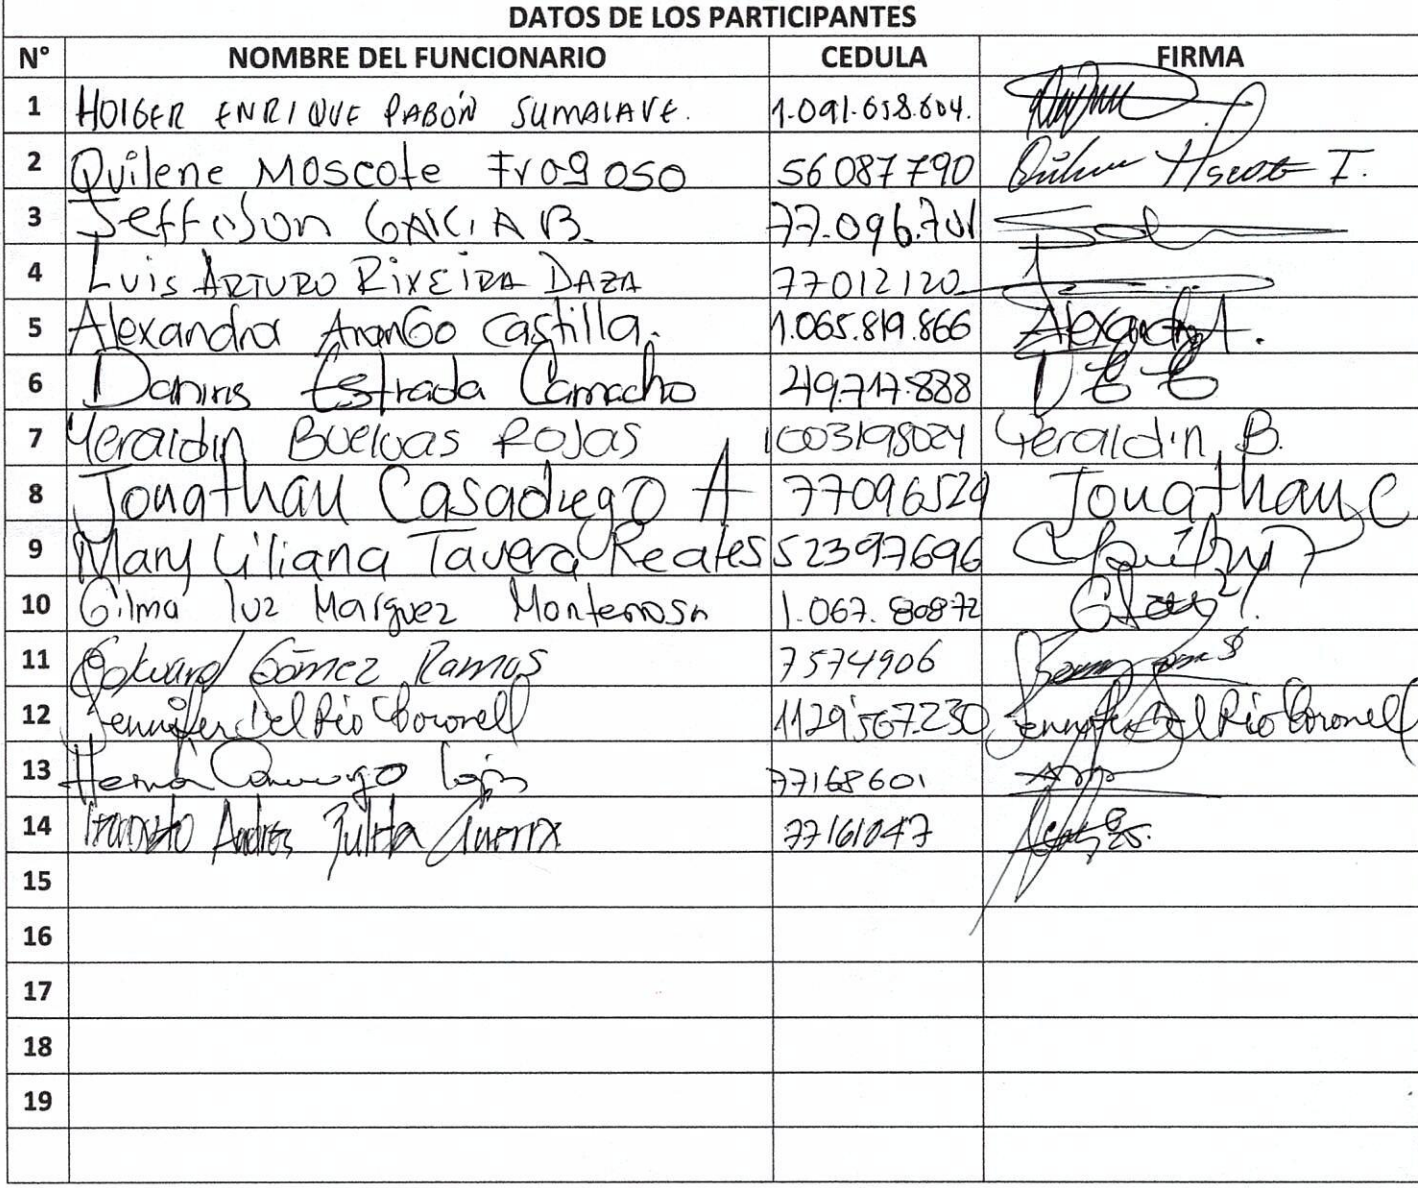 DATOS DE LOS PARTICIPANTES
N° NOMBRE DEL FUNCIONARIO CEDULA FIRMA
1 HOIGER ENRIQUE PABÓN SUMALAVE. 1.091.658.604.
2 Quilene Moscote Fragoso 56087790
3 Jefferson GARCIA B. 77.096.701
4 Luis ARTURO RIVEIRA DAZA 77012120
5 Alexandra AranGo Castilla. 1.065.819.866 Alexandra A.
6 Daniris Estrada Camacho 49.717.888
7 Yeraldin Buelvas Rojas 1003198024 Yeraldin B.
8 Jonathan Casadiego A 77096529 Jonathan C
9 Mary Liliana Tavera Reales 52397696
10 Gilma luz Marquez Montenegro 1.067.80872
11 Edward Gómez Ramos 7574906
12 Jennifer Del Río Coronell 1129'567.230 Jennifer Del Río Coronell
13 77168601
14 Andres Zuleta Guerra 77161047
15
16
17
18
19